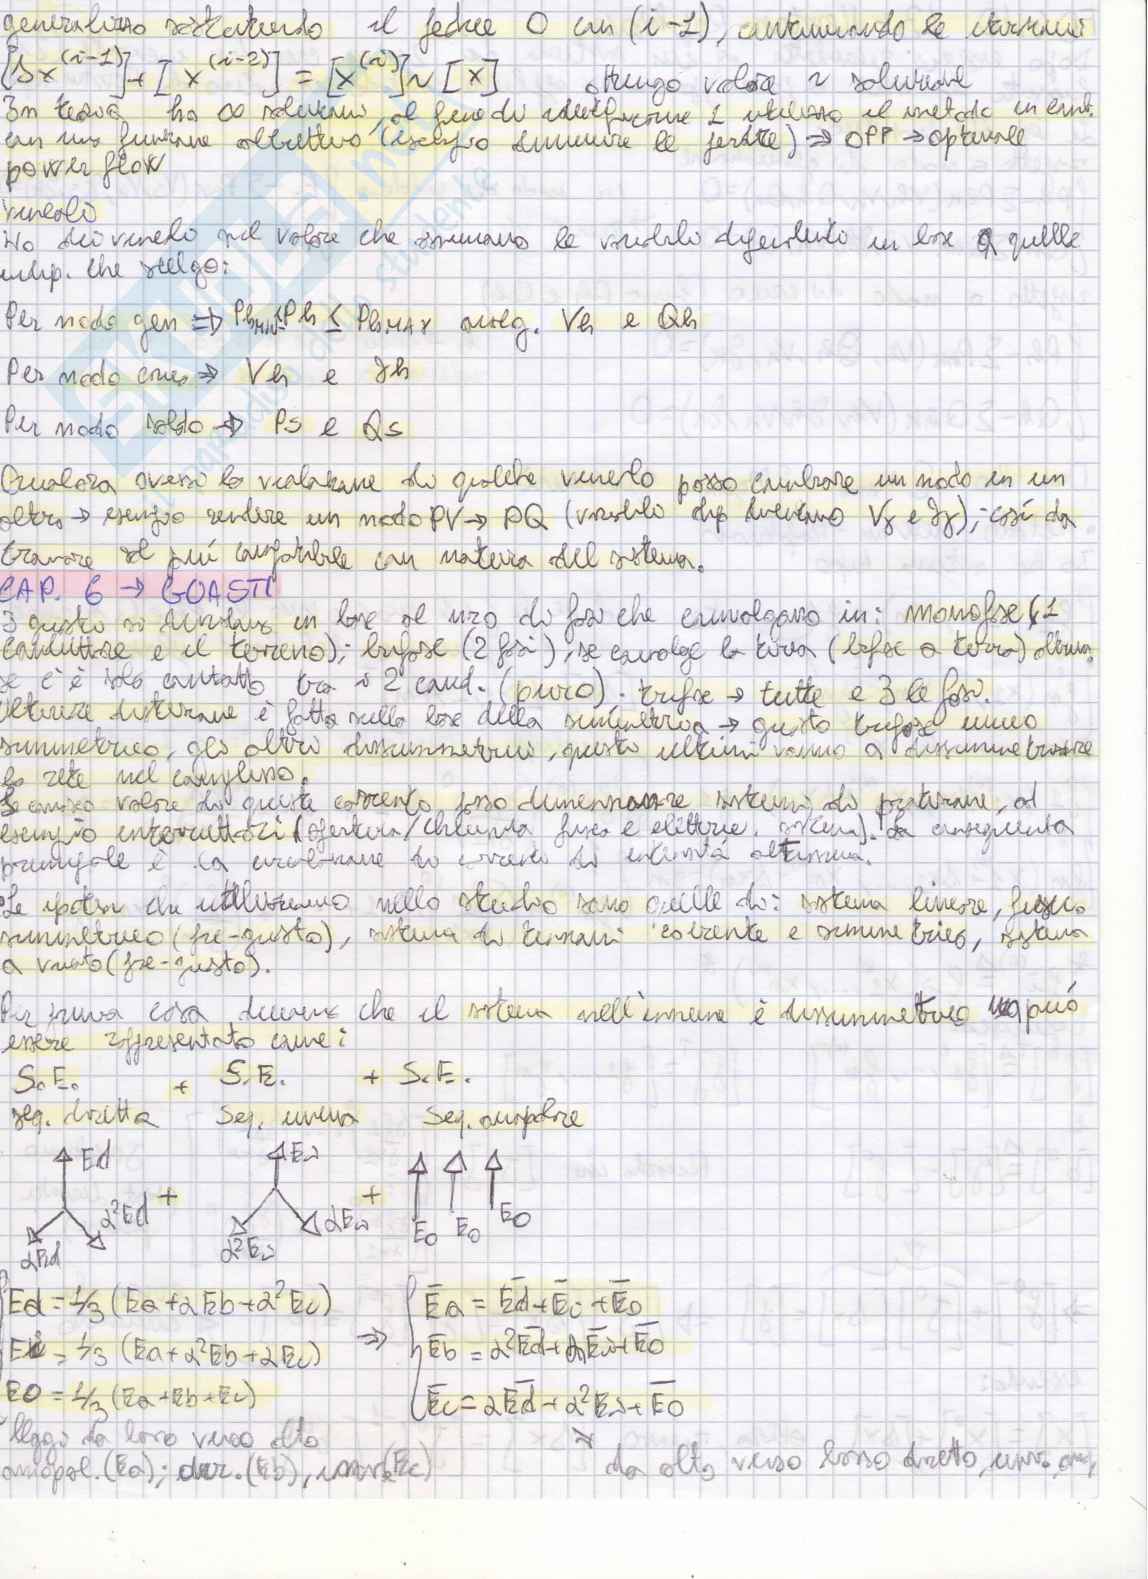 generalizzo sostituendo il pedice 0 con (i-1), continuando le iterazioni
[Δx^(i-1)] + [x^(i-2)] = [x^(i)] ~ [x] ottengo valore ~ soluzione
In teoria ha ∞ soluzioni, al fine di 1 utilizzo il metodo in
con una funzione obiettivo (esempio diminuire le perdite) ⇒ OPF → optimal
power flow
Vincoli
Ho dei vincoli sul valore che assumono le variabili dipendenti in base a quelle
indip. che scelgo:
Per nodo gen ⇒ Ph min ≤ Ph ≤ Ph MAX Vh e Qh
Per nodo ⇒ Vh e
Per nodo saldo ⇒ Ps e Qs
Qualora avessi la violazione di qualche vincolo posso cambiare un nodo in un
altro → esempio rendere un nodo PV → PQ (variabili dip diventano); così da
trovare il più compatibile con natura del sistema.
CAP. 6 → GUASTI
I guasti si in base al nro di fasi che coinvolgono in: monofase (1
conduttore e il terreno); bifase (2 fasi), se coinvolge la terra (bifase a terra)
se c'è solo contatto tra i 2 cond. (puro). trifase → tutte e 3 le fasi.
Ulteriore distinzione è fatta sulla base della simmetria → guasto trifase unico
simmetrico, gli altri dissimmetrici, questi ultimi vanno a dissimmetrizzare
la rete nel complesso.
Se conosco valore di queste correnti, posso dimensionare sistemi di protezione, ad
esempio interruttori (apertura/chiusura). La conseguenza
principale è la circolazione di correnti di intensità altissima.
Le ipotesi che utilizziamo nello studio sono quelle di: sistema lineare,
simmetrico (pre-guasto), sistema di tensioni e simmetrico, sistema
a vuoto (pre-guasto).
Per prima cosa che il sistema nell'insieme è dissimmetrico ma può
essere rappresentato come:
S.E. + S.E. + S.E.
seq. diretta Seq. inversa Seq. omopolare
Ed + Ei +
αEd α²Ed α²Ei αEi E0 E0 E0
Ed = 1/3 (Ea + αEb + α²Ec) Ēa = Ēd + Ēi + Ē0
Ei = 1/3 (Ea + α²Eb + αEc) ⇒ Ēb = α²Ēd + αĒi + Ē0
E0 = 1/3 (Ea + Eb + Ec) Ēc = αĒd + α²Ēi + Ē0
leggi da basso verso alto
omopol. (Ea); dir. (Eb), inversa (Ec) da alto verso basso diretto,